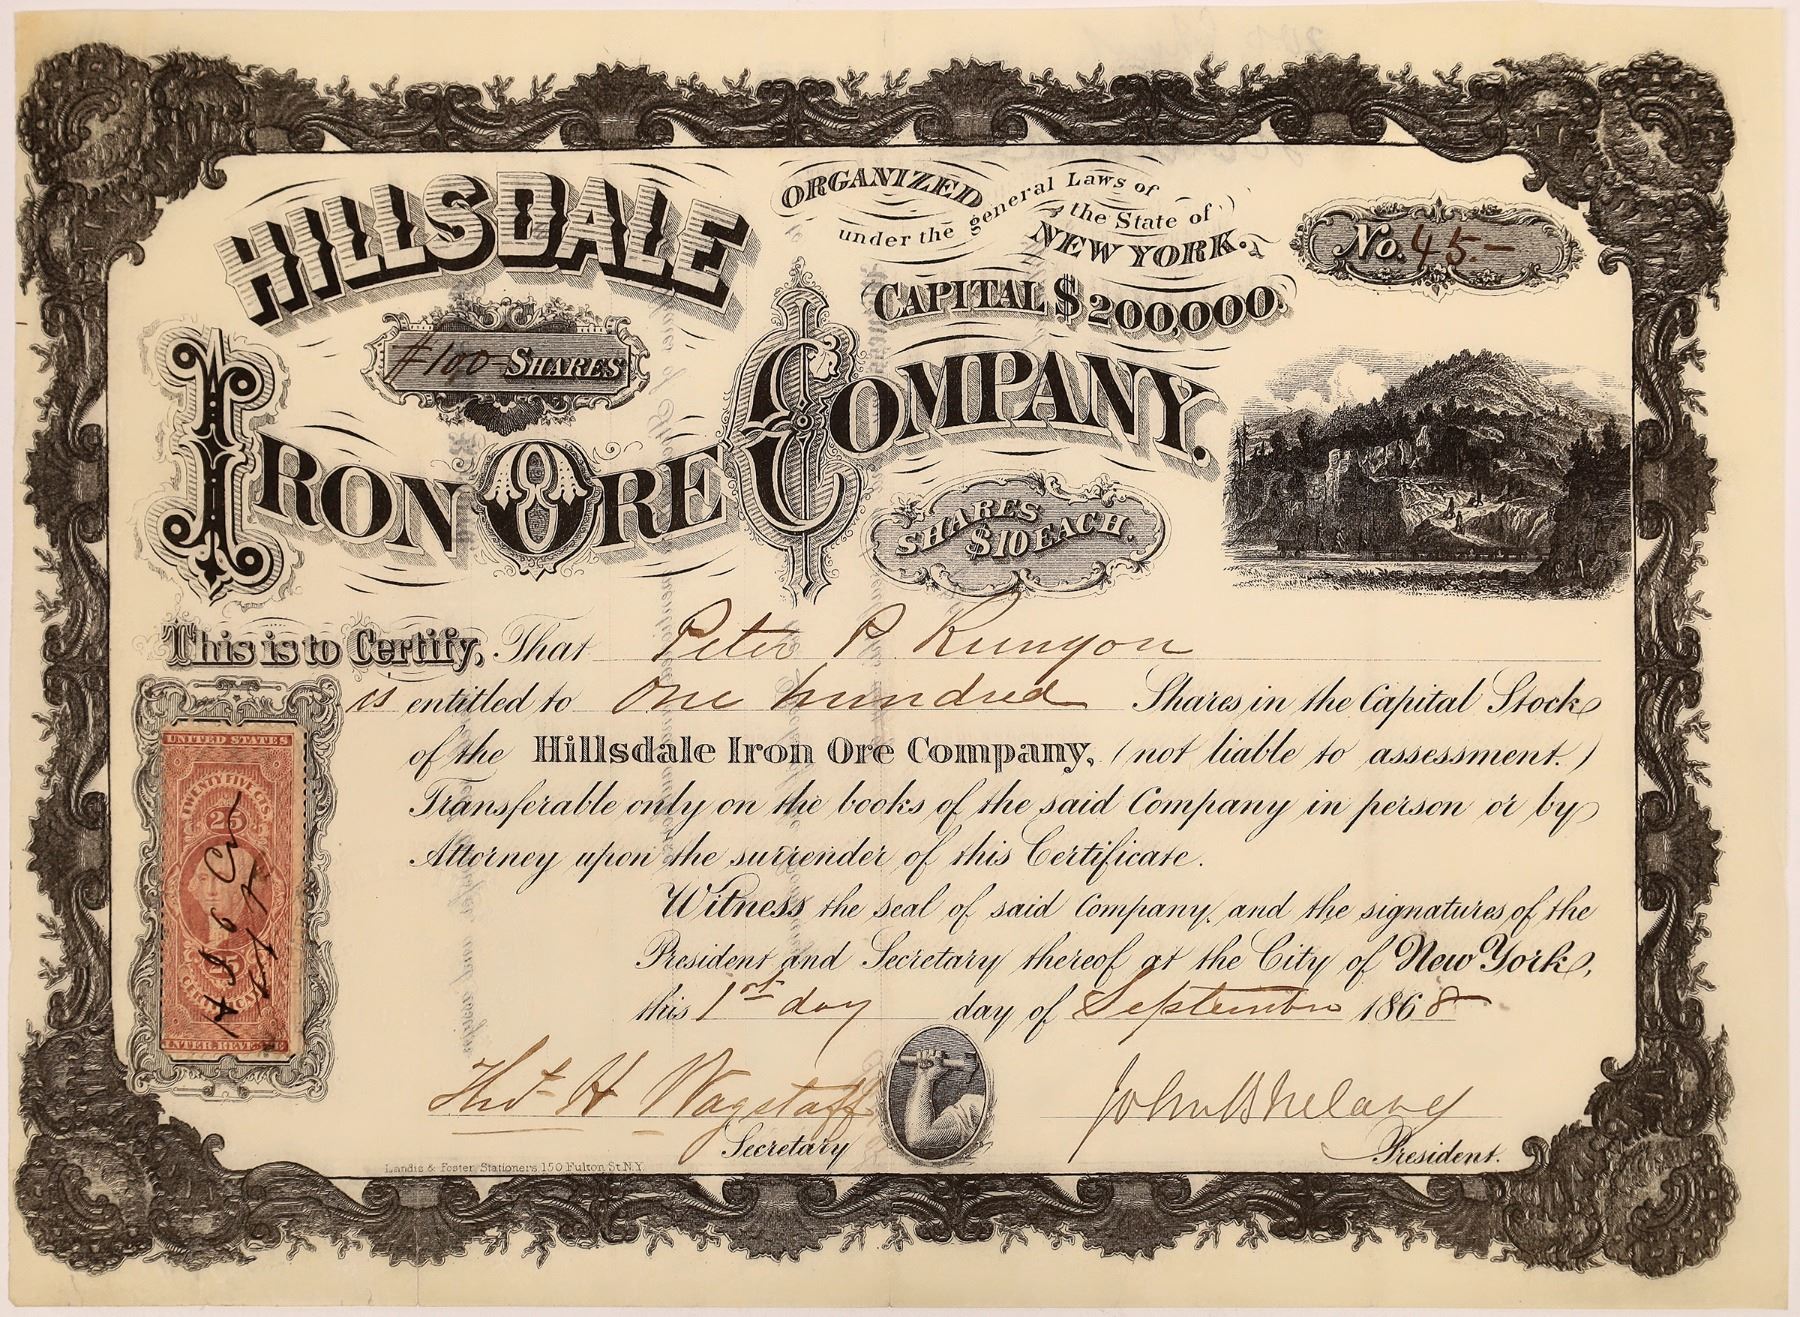 HILLSDALE
ORGANIZED
under the general Laws of
the State of
NEW YORK.
No. 45.—
CAPITAL $200,000.
#100 SHARES
IRON ORE COMPANY.
SHARES
$10 EACH.
This is to Certify, That Peter P Runyon
is entitled to One hundred Shares in the Capital Stock
of the Hillsdale Iron Ore Company, (not liable to assessment.)
Transferable only on the books of the said Company in person or by
Attorney upon the surrender of this Certificate.
Witness the seal of said Company, and the signatures of the
President and Secretary thereof at the City of New York,
this 1st day day of September 1868
UNITED STATES
TWENTY FIVE CTS.
25
INTER. REVENUE
Thos H Wagstaff
Secretary
President.
Landis & Foster Stationers 150 Fulton St. N.Y.